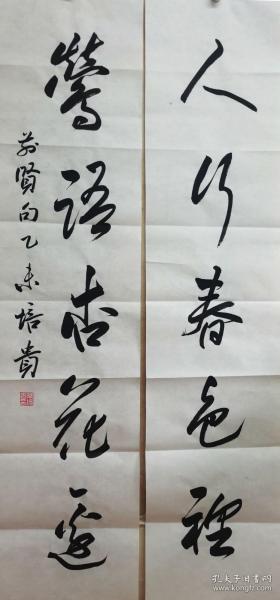 人行春色裡
鶯語杏花邊
前賢句乙未培貴
孔夫子旧书网